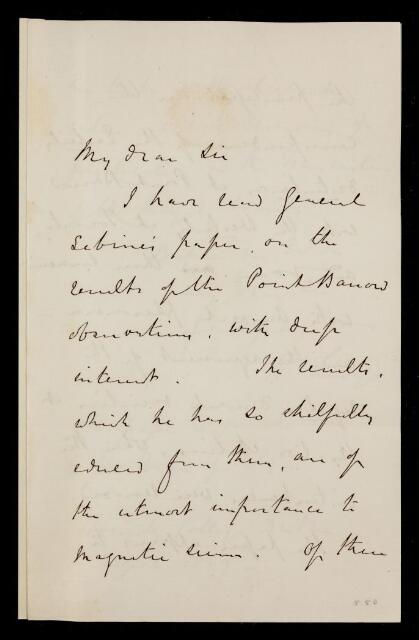 My dear Sir
I have read General
Sabine's paper, on the
results of the Point Barrow
observations, with deep
interest. The results,
which he has so skilfully
educed from them, are of
the utmost importance to
magnetic science. Of these